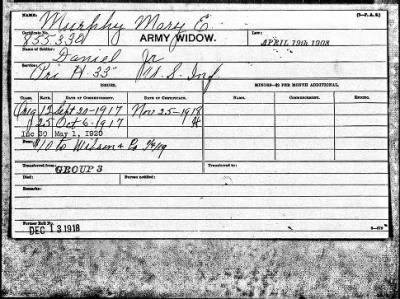 NAME: Murphy Mary E. (3-P.A.S.)
Certificate No. ARMY WIDOW. Law: APRIL 19th 1908
Name of Soldier: Daniel Jr
Service: Pri H. 33" U.S. Inf
ISSUES. MINORS—$2 PER MONTH ADDITIONAL.
CLASS. RATE. DATE OF COMMENCEMENT. DATE OF CERTIFICATE. NAME. COMMENCING. ENDING.
Orig 12 Sept 20-1917 Nov 25-1918
25 Oct 6-1917
Inc 30 May 1, 1920
$10 to Wilson & Co
Transferred from: GROUP 3 Transferred to:
Died: Bureau notified:
Remarks:
Former Roll No.
DEC 13 1918